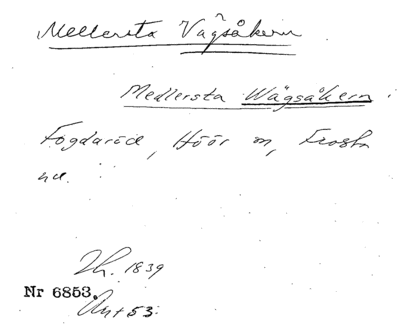 Mellersta Vägsåkern
Medlersta Wägsåkern.
Fogdaröd, Höör m, Frosta
hd.
Lh. 1839
Nr 6853.
Akt 53.